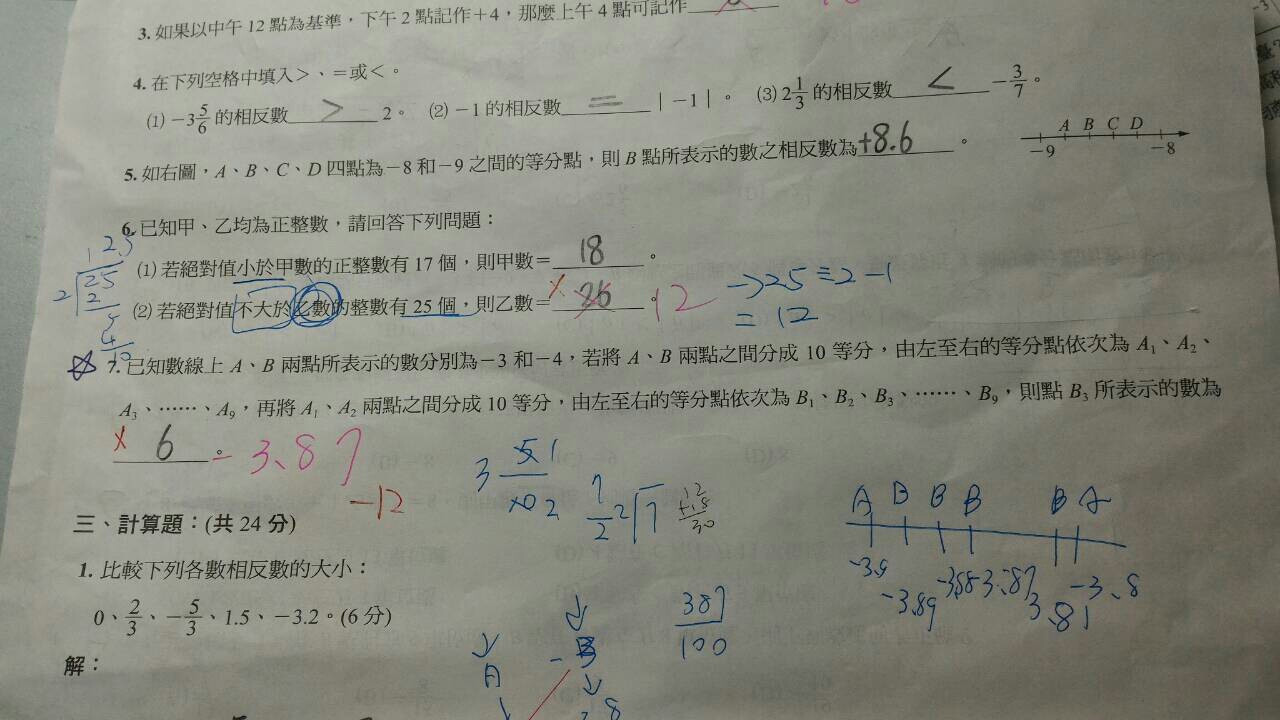 3. 如果以中午 12 點為基準，下午 2 點記作＋4，那麼上午 4 點可記作
4. 在下列空格中填入＞、＝或＜。
(1) －3 5/6 的相反數 ＞ 2。 (2) －1 的相反數 ＝ |－1|。 (3) 2 1/3 的相反數 ＜ －3/7。
5. 如右圖，A、B、C、D 四點為－8 和－9 之間的等分點，則 B 點所表示的數之相反數為 +8.6 。
A B C D
－9 －8
6. 已知甲、乙均為正整數，請回答下列問題：
(1) 若絕對值小於甲數的正整數有 17 個，則甲數＝ 18 。
(2) 若絕對值不大於乙數的整數有 25 個，則乙數＝ 26 。 12
→25÷2-1
= 12
7. 已知數線上 A、B 兩點所表示的數分別為－3 和－4，若將 A、B 兩點之間分成 10 等分，由左至右的等分點依次為 A₁、A₂、
A₃、……、A₉，再將 A₁、A₂ 兩點之間分成 10 等分，由左至右的等分點依次為 B₁、B₂、B₃、……、B₉，則點 B₃ 所表示的數為
6 。 -3.87
-12
A B B B B A
-3.9 -3.89 -3.88 -3.87 3.81 -3.8
387
100
三、計算題：(共 24 分)
1. 比較下列各數相反數的大小：
0、2/3、－5/3、1.5、－3.2。(6 分)
解：
A